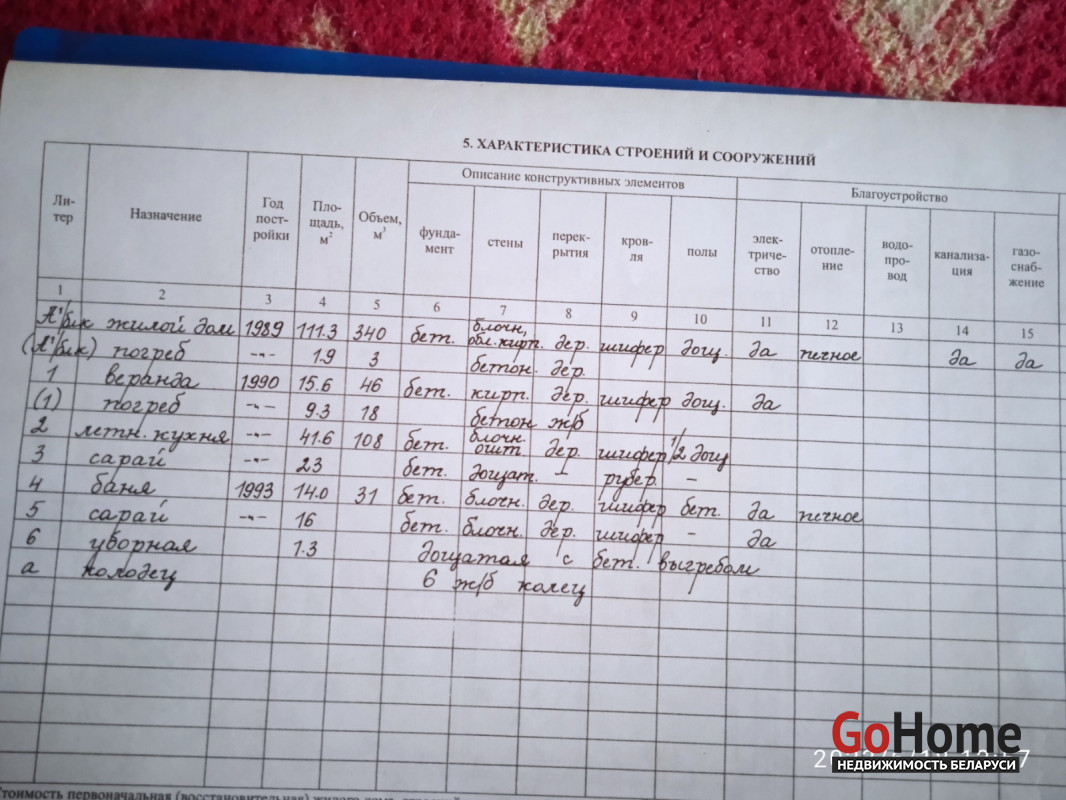 5. ХАРАКТЕРИСТИКА СТРОЕНИЙ И СООРУЖЕНИЙ
Ли-тер Назначение Год пост-ройки Пло-щадь, м² Объем, м³ Описание конструктивных элементов Благоустройство
фунда-мент стены перек-рытия кров-ля полы элек-триче-ство отопле-ние водо-про-вод канализа-ция газо-снаб-жение
1 2 3 4 5 6 7 8 9 10 11 12 13 14 15
А¹/блк жилой дом 1989 111.3 340 бет. блочн, обл. кирп. дер. шифер дощ. да печное да да
(А¹/блк) погреб -"- 1.9 3 бетон. дер.
1 веранда 1990 15.6 46 бет. кирп. дер. шифер дощ. да
(1) погреб -"- 9.3 18 бетон ж/б
2 летн. кухня -"- 41.6 108 бет. блочн. ошт. дер. шифер 1/2 дощ
3 сарай -"- 23 бет. дощат. – рубер. –
4 баня 1993 14.0 31 бет. блочн. дер. шифер бет. да печное
5 сарай -"- 16 бет. блочн. дер. шифер – да
6 уборная 1.3 дощатая с бет. выгребом
а колодец 6 ж/б колец
GoHome
НЕДВИЖИМОСТЬ БЕЛАРУСИ
тоимость первоначальная (восстановительная) жилого дома, строений